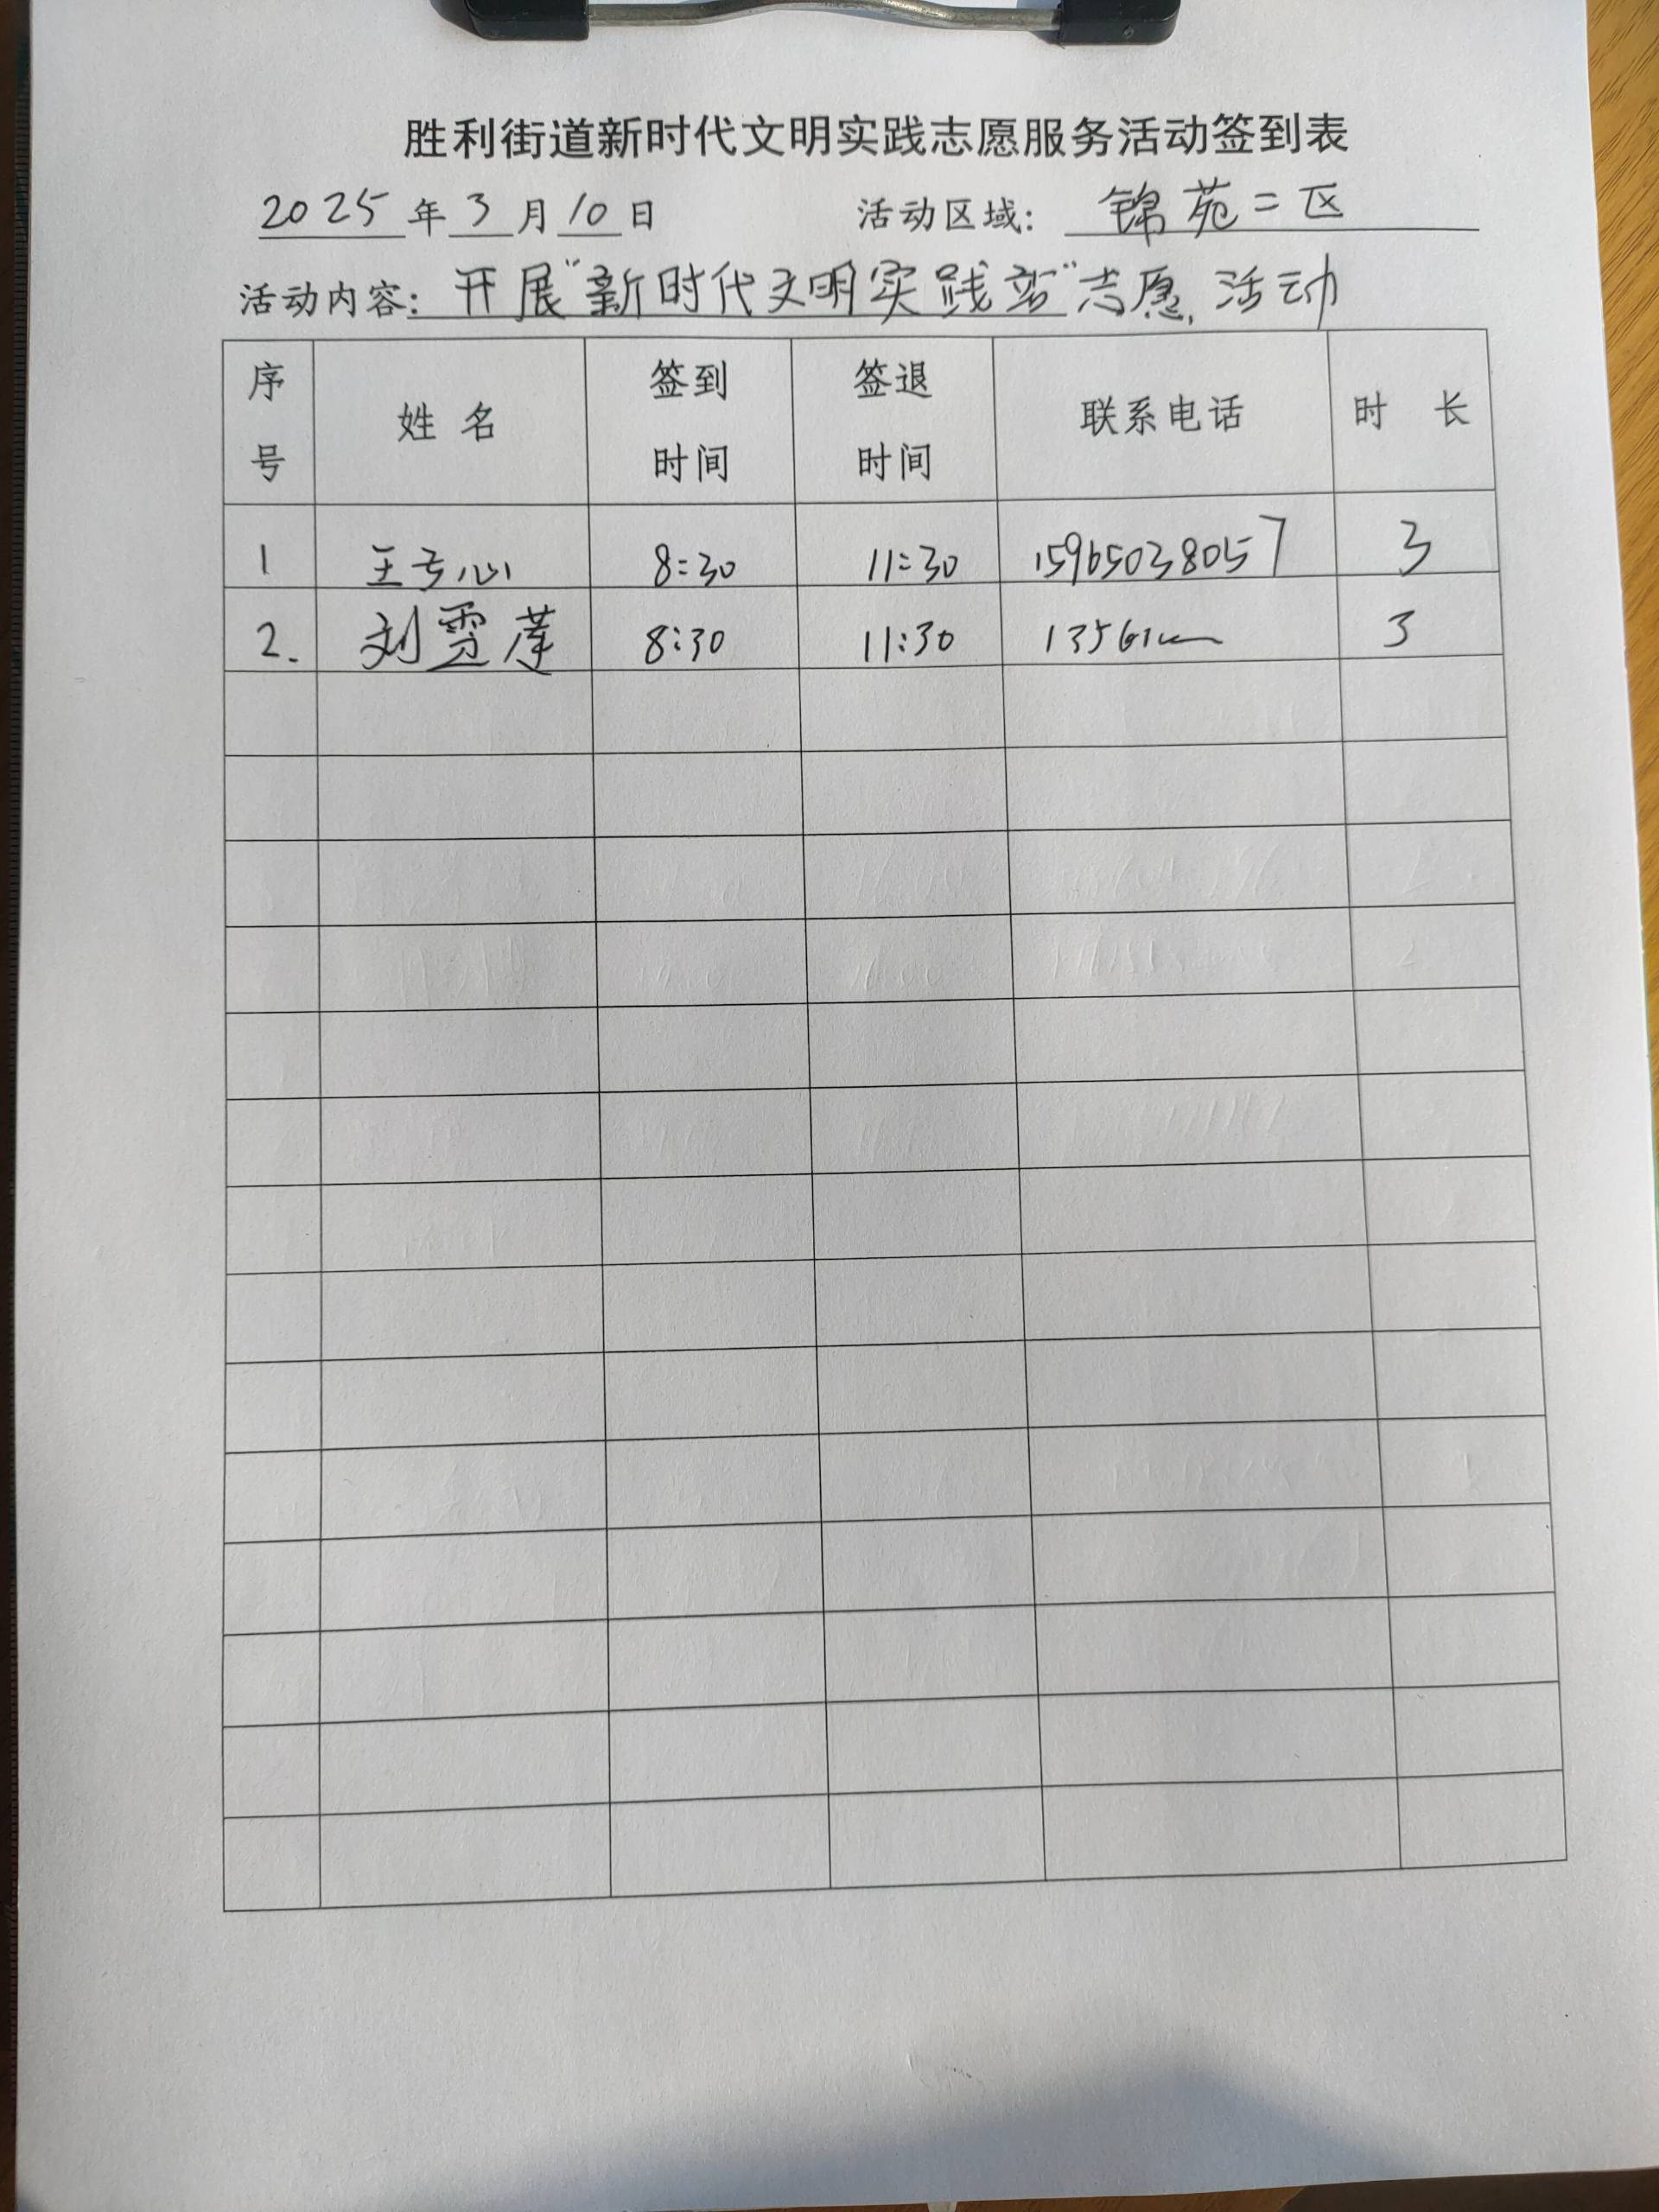 胜利街道新时代文明实践志愿服务活动签到表
2025年3月10日 活动区域：锦苑二区
活动内容：开展"新时代文明实践站"志愿活动
序号 姓名 签到时间 签退时间 联系电话 时长
1 王专心 8:30 11:30 15965038057 3
2. 刘 8:30 11:30 13561 3